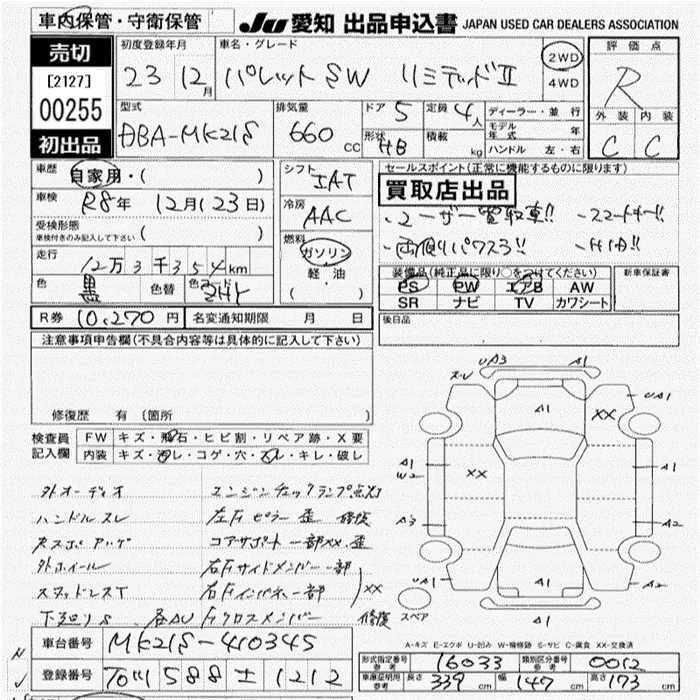 車内保管・守衛保管
JU 愛知 出品申込書 JAPAN USED CAR DEALERS ASSOCIATION
売切
[2127]
00255
初出品
初度登録年月
23 12月
車名・グレード
パレットSW リミテッドⅡ
2WD
4WD
評価点
R
外装 内装
C C
型式
DBA-MK21S
排気量
660 cc
ドア 5
形状 HB
定員 4人
積載 kg
ディーラー・並行
モデル年式 年
ハンドル 左・右
車歴 自家用・( )
車検 R8年 12月(23日)
受検形態
車検付きのみ記入して下さい ( )
走行 12万3千354km
色 黒 色替 色コード ZHY
シフト IAT
冷房 AAC
燃料
ガソリン
軽・油
( )
セールスポイント(正常に機能するものに限り)
買取店出品
・ユーザー買取車!! ・スマートキー!!
・両側パワスラ!! ・HID!!
装備品(純正品に限り○をつけてください)
PS PW エアB AW
SR ナビ TV カワシート
新車保証書
R券 10,270円 名変通知期限 月 日
後日品
注意事項申告欄(不具合内容等は具体的に記入して下さい)
修復歴 有 〔箇所 〕
検査員記入欄
FW キズ・飛石・ヒビ割・リペア跡・X要
内装 キズ・汚レ・コゲ・穴・スレ・キレ・破レ
外オーディオ エンジンチェックランプ点灯
ハンドルスレ 左右ピラー歪 修復
コアサポート一部XX.歪
外ホイール 右Fサイドメンバー一部
スタッドレスT 右Fインパネ一部 XX
下廻りS、各AU Fクロスメンバー 修復
スレ UA3 A1
UA1
A1 XX
A1
W2 XX A1
A3 A2
UA1 A1 A2
A1
スペア
A-キズ E-エクボ U-凹み W-補修跡 S-サビ C-腐食 XX-交換済
車台番号 MK21S-410345
登録番号 588 1212
形式指定番号 参考 16033 類別区分番号 参考 0012
車庫証明用 参考 長さ 339cm 幅 147cm 高さ 173cm